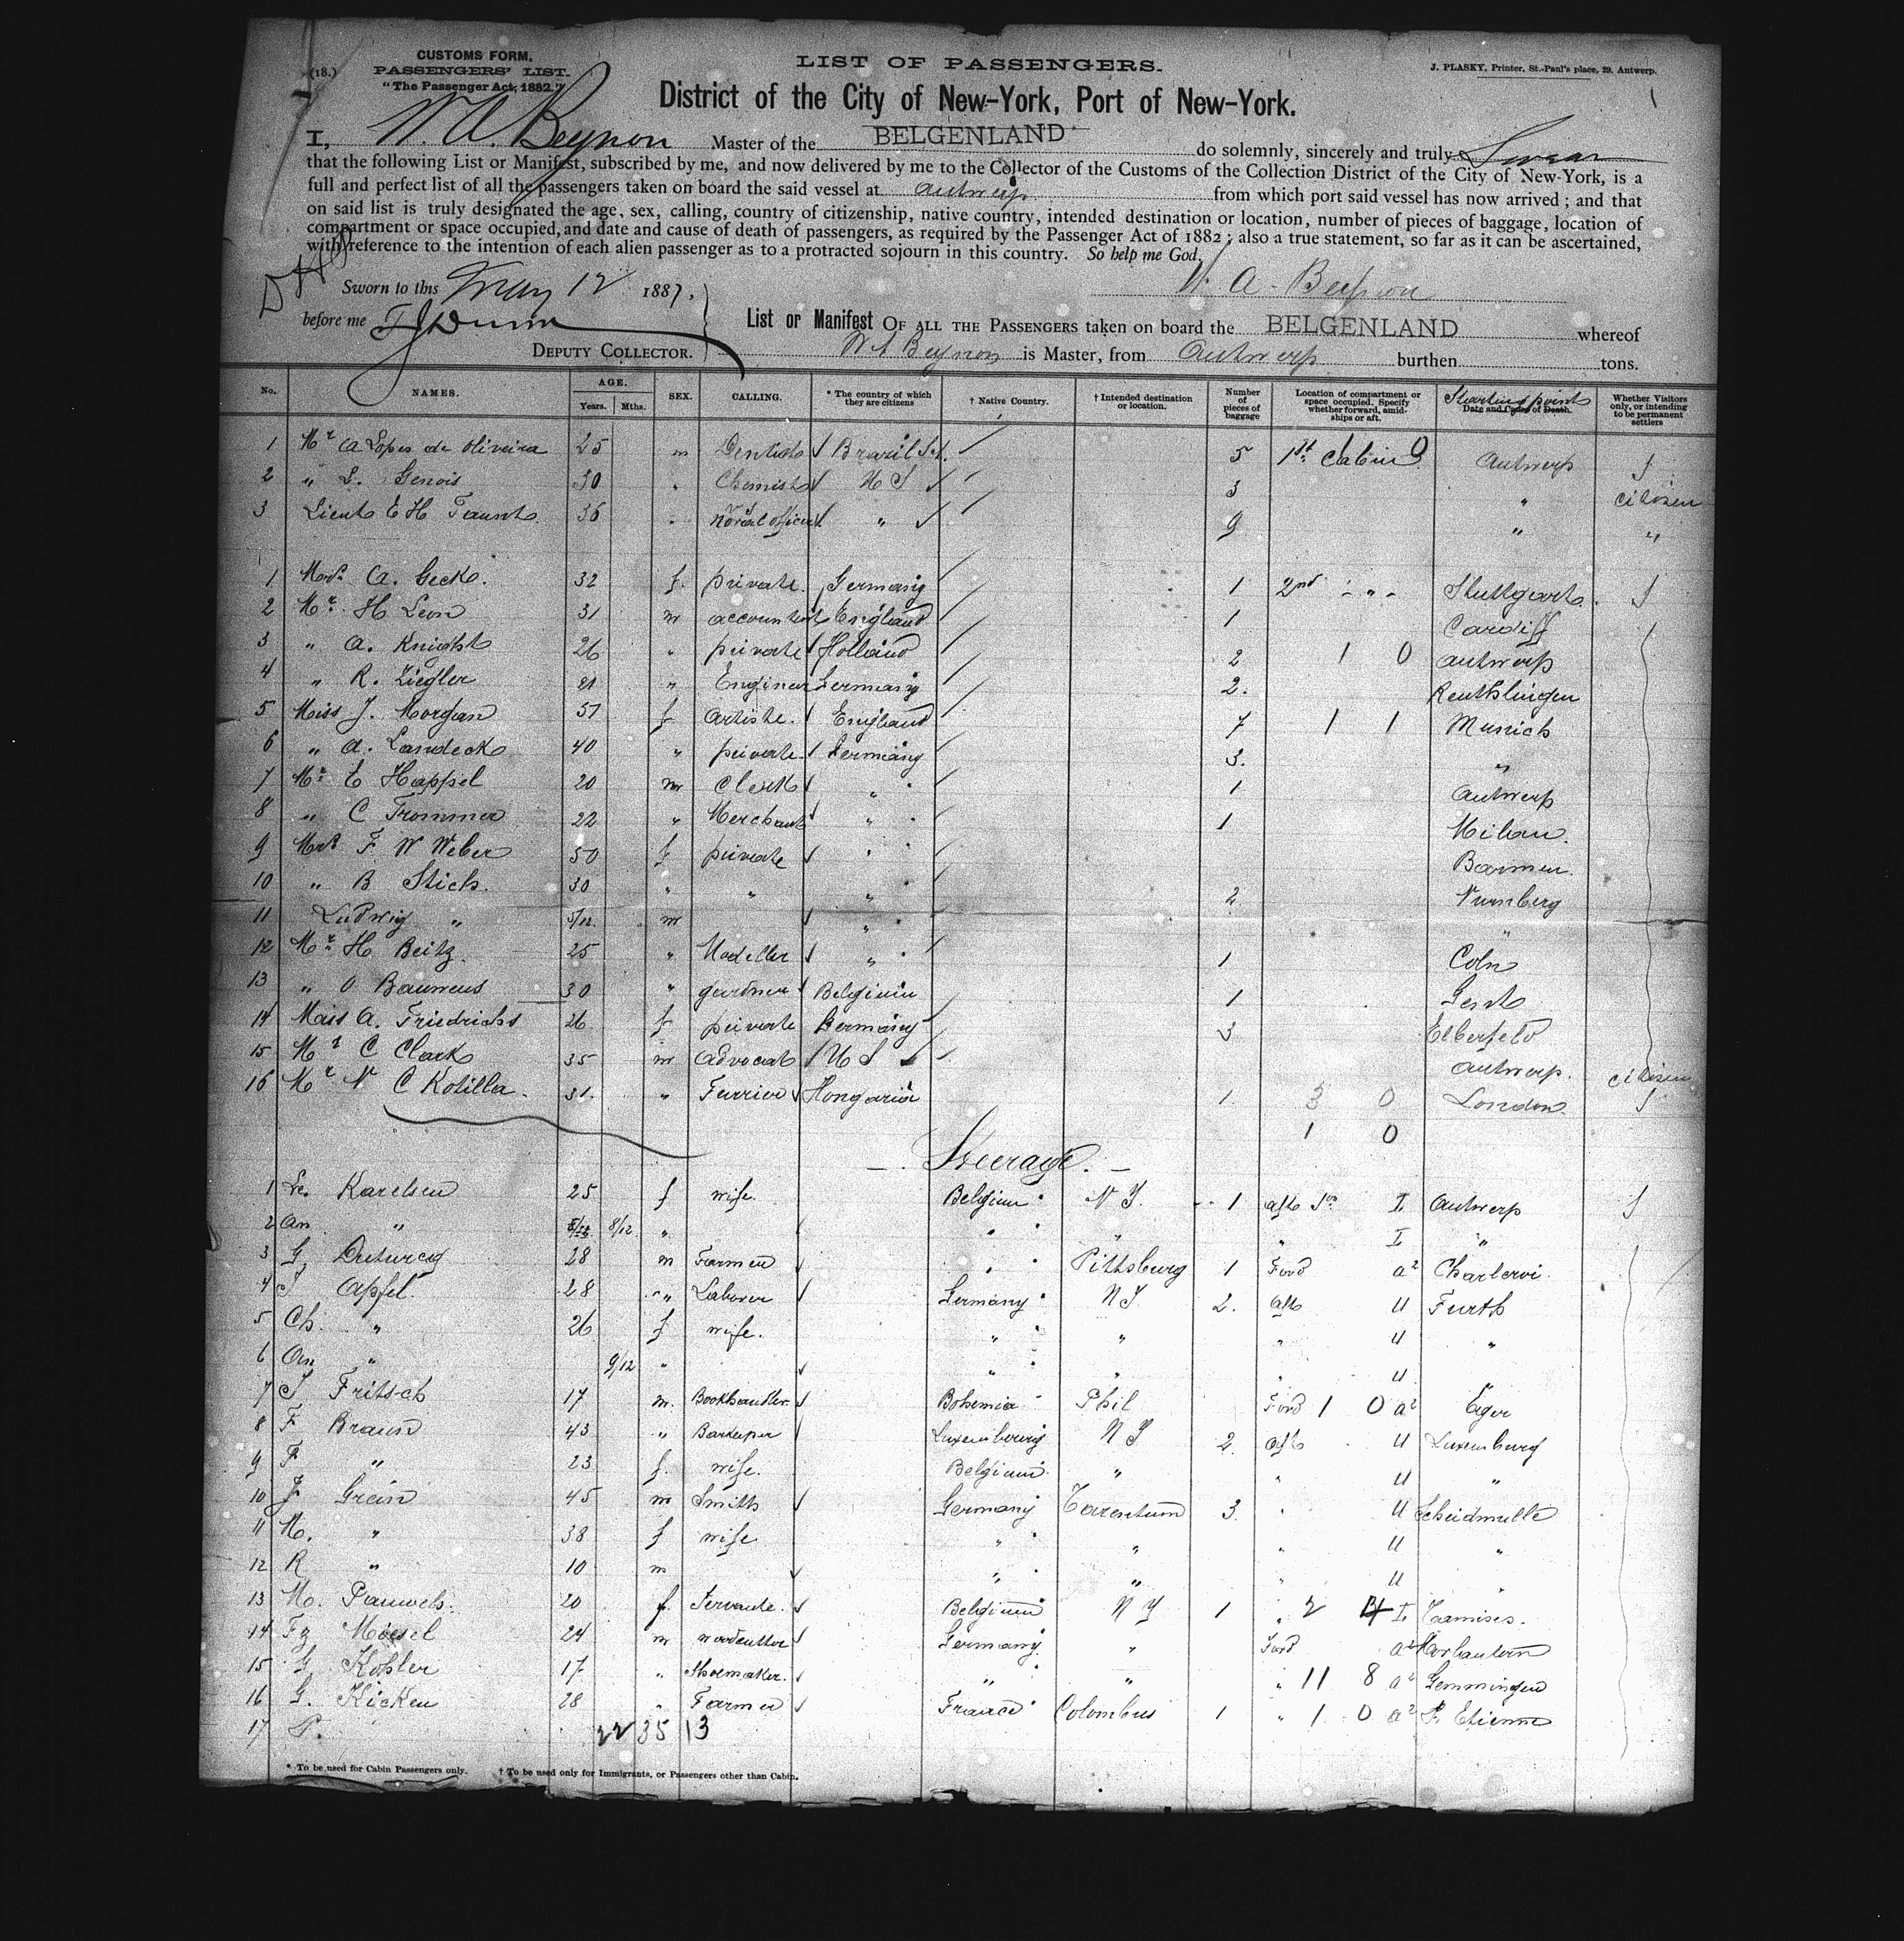 (18.)
CUSTOMS FORM.
PASSENGERS' LIST.
"The Passenger Act, 1882."
LIST OF PASSENGERS.
J. PLASKY, Printer, St.-Paul's place, 29. Antwerp.
1
District of the City of New-York, Port of New-York.
I, W. A. Beynon Master of the BELGENLAND do solemnly, sincerely and truly Swear
that the following List or Manifest, subscribed by me, and now delivered by me to the Collector of the Customs of the Collection District of the City of New-York, is a
full and perfect list of all the passengers taken on board the said vessel at Antwerp from which port said vessel has now arrived; and that
on said list is truly designated the age, sex, calling, country of citizenship, native country, intended destination or location, number of pieces of baggage, location of
compartment or space occupied, and date and cause of death of passengers, as required by the Passenger Act of 1882; also a true statement, so far as it can be ascertained,
with reference to the intention of each alien passenger as to a protracted sojourn in this country. So help me God.
Sworn to this May 12 1887, W. A. Beynon
before me
List or Manifest OF ALL THE PASSENGERS taken on board the BELGENLAND whereof
DEPUTY COLLECTOR. W A Beynon is Master, from Antwerp burthen tons.
No. NAMES. AGE. Years. Mths. SEX. CALLING. * The country of which they are citizens † Native Country. † Intended destination or location. Number of pieces of baggage Location of compartment or space occupied. Specify whether forward, amidships or aft. Starting point Date and Cause of Death. Whether Visitors only, or intending to be permanent settlers
1 Mr A Lopes de Oliveira 25 m Dentist Brazil 5 1st Cabin 0 Antwerp S
2 " L. Genois 30 " Chemist U S 3 " citizen
3 Lieut E H Taunt 36 " Naval officer " 9 " "
1 Mrs A. Geck. 32 f. private. Germany 1 2nd - " - Stuttgart. S
2 Mr H Leon 31 m accountant England 1 Cardiff
3 " A. Knight 26 " private Holland 2 1 0 Antwerp
4 " R. Ziegler 21 " Engineer Germany 2. Reuthlingen
5 Miss J. Morgan 51 f artiste. England 7 1 1 Munich
6 " A. Landeck 40 " private. Germany 3. "
7 Mr E Happel 20 m Clerk " 1 Antwerp
8 " C Trommer 22 " Merchant " 1 Milan.
9 Mrs F W Weber 50 f private " Barmen.
10 " B Stich. 30 " " " 2 Nurnberg
11 Ludwig " 5/12. m " "
12 Mr H Beitz. 25 " Modeller " 1 Coln
13 " O Bauwens 30 " gardner Belgium 1 Gent
14 Miss A. Friedrichs 26 f private Germany 3 Elberfeld
15 Mr C Clark 35 m Advocat U S Antwerp. citizen
16 Mr N C Kotilla. 31. " Furrier Hongaria 1 3 0 London. S
1 0
- Steerage. -
1 Le. Karelsen 25 f wife. Belgium N Y. 1 aft I. Antwerp S
2 An " 8/12 " " " " I "
3 G. 28 m Farmer " Pittsburg 1 Ford a2 Charleroi.
4 J Apfel. 28 " Laborer Germany N Y. 2. aft U Furth
5 Ch. " 26 f wife. " " " U "
6 An " 9/12 " " " " U
7 J Fritsch 17 m. Bookhandler. Bohemia Phil Ford 1 0 a2 Eger
8 F Braun 43 " Barkeeper Luxembourg N Y 2. aft U Luxemburg
9 F " 23 f. wife. Belgium " " U "
10 J Grein 45 m Smith Germany Tarentum 3. " U Scheidmulle
11 M. " 38 f wife " " " U "
12 R " 10 m " " " U "
13 M. Pauwels. 20 f. Servante. Belgium N Y 1 " 2 4 I. Tamises.
14 Fz 24 m woodcutter Germany " Ford a2
15 G Kohler 17 " Shoemaker. " " " 11 8 a2 Gemmingen
16 G. Kicken 28 " Farmer France Colombus 1 " 1 0 a2 St. Etienne
17 P. 22 35 13
* To be used for Cabin Passengers only. † To be used only for Immigrants, or Passengers other than Cabin.